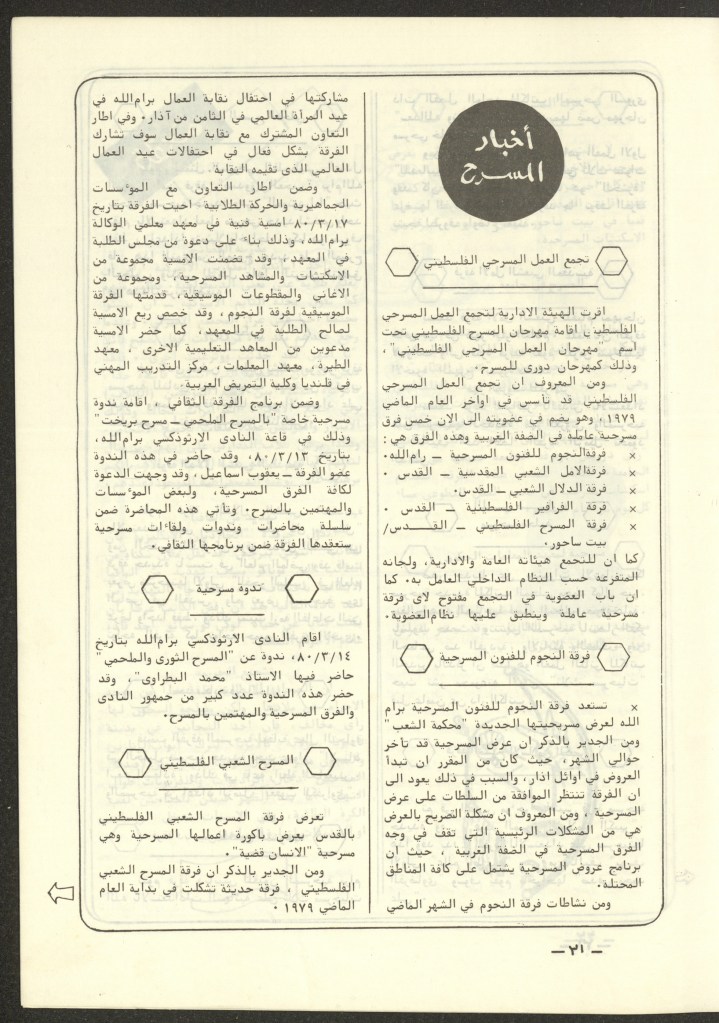 أخبار
المسرح
تجمع العمل المسرحي الفلسطيني
اقرت الهيئة الادارية لتجمع العمل المسرحي
الفلسطيني اقامة مهرجان المسرح الفلسطيني تحت
اسم "مهرجان العمل المسرحي الفلسطيني"،
وذلك كمهرجان دورى للمسرح.
ومن المعروف ان تجمع العمل المسرحي
الفلسطيني قد تأسس في اواخر العام الماضي
١٩٧٩، وهو يضم في عضويته الى الان خمس فرق
مسرحية عاملة في الضفة الغربية وهذه الفرق هي:
× فرقة النجوم للفنون المسرحية ــ رام الله.
× فرقة الامل الشعبي المقدسية ــ القدس .
× فرقة الدلال الشعبي ــ القدس.
× فرقة الفرافير الفلسطينية ــ القدس .
× فرقة المسرح الفلسطيني ــ القـــــدس/
بيت ساحور.
كما ان للتجمع هيئاته العامة والادارية، ولجانه
المتفرعة حسب النظام الداخلي العامل به. كما
ان باب العضوية في التجمع مفتوح لاى فرقة
مسرحية عاملة وينطبق عليها نظام العضوية.
فرقة النجوم للفنون المسرحية
× تستعد فرقة النجوم للفنون المسرحية برام
الله لعرض مسريحيتها الجديدة "محكمة الشعب"
ومن الجدير بالذكر ان عرض المسرحية قد تأخر
حوالي الشهر، حيث كان من المقرر ان تبدأ
العروض في اوائل اذار، والسبب في ذلك يعود الى
ان الفرقة تنتظر الموافقة من السلطات على عرض
المسرحية ، ومن المعروف ان مشكلة التصريح بالعرض
هي من المشكلات الرئيسية التي تقف في وجه
الفرق المسرحية في الضفة الغربية ، حيث ان
برنامج عروض المسرحية يشتمل على كافة المناطق
المحتلة.
ومن نشاطات فرقة النجوم في الشهر الماضي
مشاركتها في احتفال نقابة العمال برام الله في
عيد المرأة العالمي في الثامن من آذار. وفي اطار
التعاون المشترك مع نقابة العمال سوف تشارك
الفرقة بشكل فعال في احتفالات عيد العمال
العالمي الذى تقيمه النقابة.
وضمن اطار التعاون مع المؤسسات
الجماهيرية والحركة الطلابية . احيت الفرقة بتاريخ
٨٠/٣/١٧ امسية فنية في معهد معلمي الوكالة
برام الله، وذلك بناء على دعوة من مجلس الطلبة
في المعهد، وقد تضمنت الامسية مجموعة من
الاسكتشات والمشاهد المسرحية، ومجموعة من
الاغاني والمقطوعات الموسيقية، قدمتها الفرقة
الموسيقية لفرقة النجوم ، وقد خصص ريع الامسية
لصالح الطلبة في المعهد، كما حضر الامسية
مدعوين من المعاهد التعليمية الاخرى ، معهد
الطيرة، معهد المعلمات، مركز التدريب المهني
في قلنديا وكلية التمريض العربية.
وضمن برنامج الفرقة الثقافي ، اقامة ندوة
مسرحية خاصة "بالمسرح الملحمي ــ مسرح بريخت"
وذلك في قاعة النادى الارثوذكسي برام الله،
بتاريخ ٨٠/٣/١٣، وقد حاضر في هذه الندوة
عضو الفرقة ــ يعقوب اسماعيل، وقد وجهت الدعوة
لكافة الفرق المسرحية، ولبعض المؤسسات
والمهتمين بالمسرح. وتأتي هذه المحاضرة ضمن
سلسلة محاضرات وندوات ولقاءات مسرحية
ستعقدها الفرقة ضمن برنامجها الثقافي.
ندوة مسرحية
اقام النادى الارثوذكسي برام الله بتاريخ
٨٠/٣/١٤، ندوة عن "المسرح الثورى والملحمي"
حاضر فيها الاستاذ "محمد البطراوى"، وقد
حضر هذه الندوة عدد كبير من جمهور النادى
والفرق المسرحية والمهتمين بالمسرح.
المسرح الشعبي الفلسطيني
تعرض فرقة المسرح الشعبي الفلسطيني
بالقدس بعرض باكورة اعمالها المسرحية وهي
مسرحية "الانسان قضية".
ومن الجدير بالذكر ان فرقة المسرح الشعبي
الفلسطيني ، فرقة حديثة تشكلت في بداية العام
الماضي ١٩٧٩ .
ــ ٢١ ــ